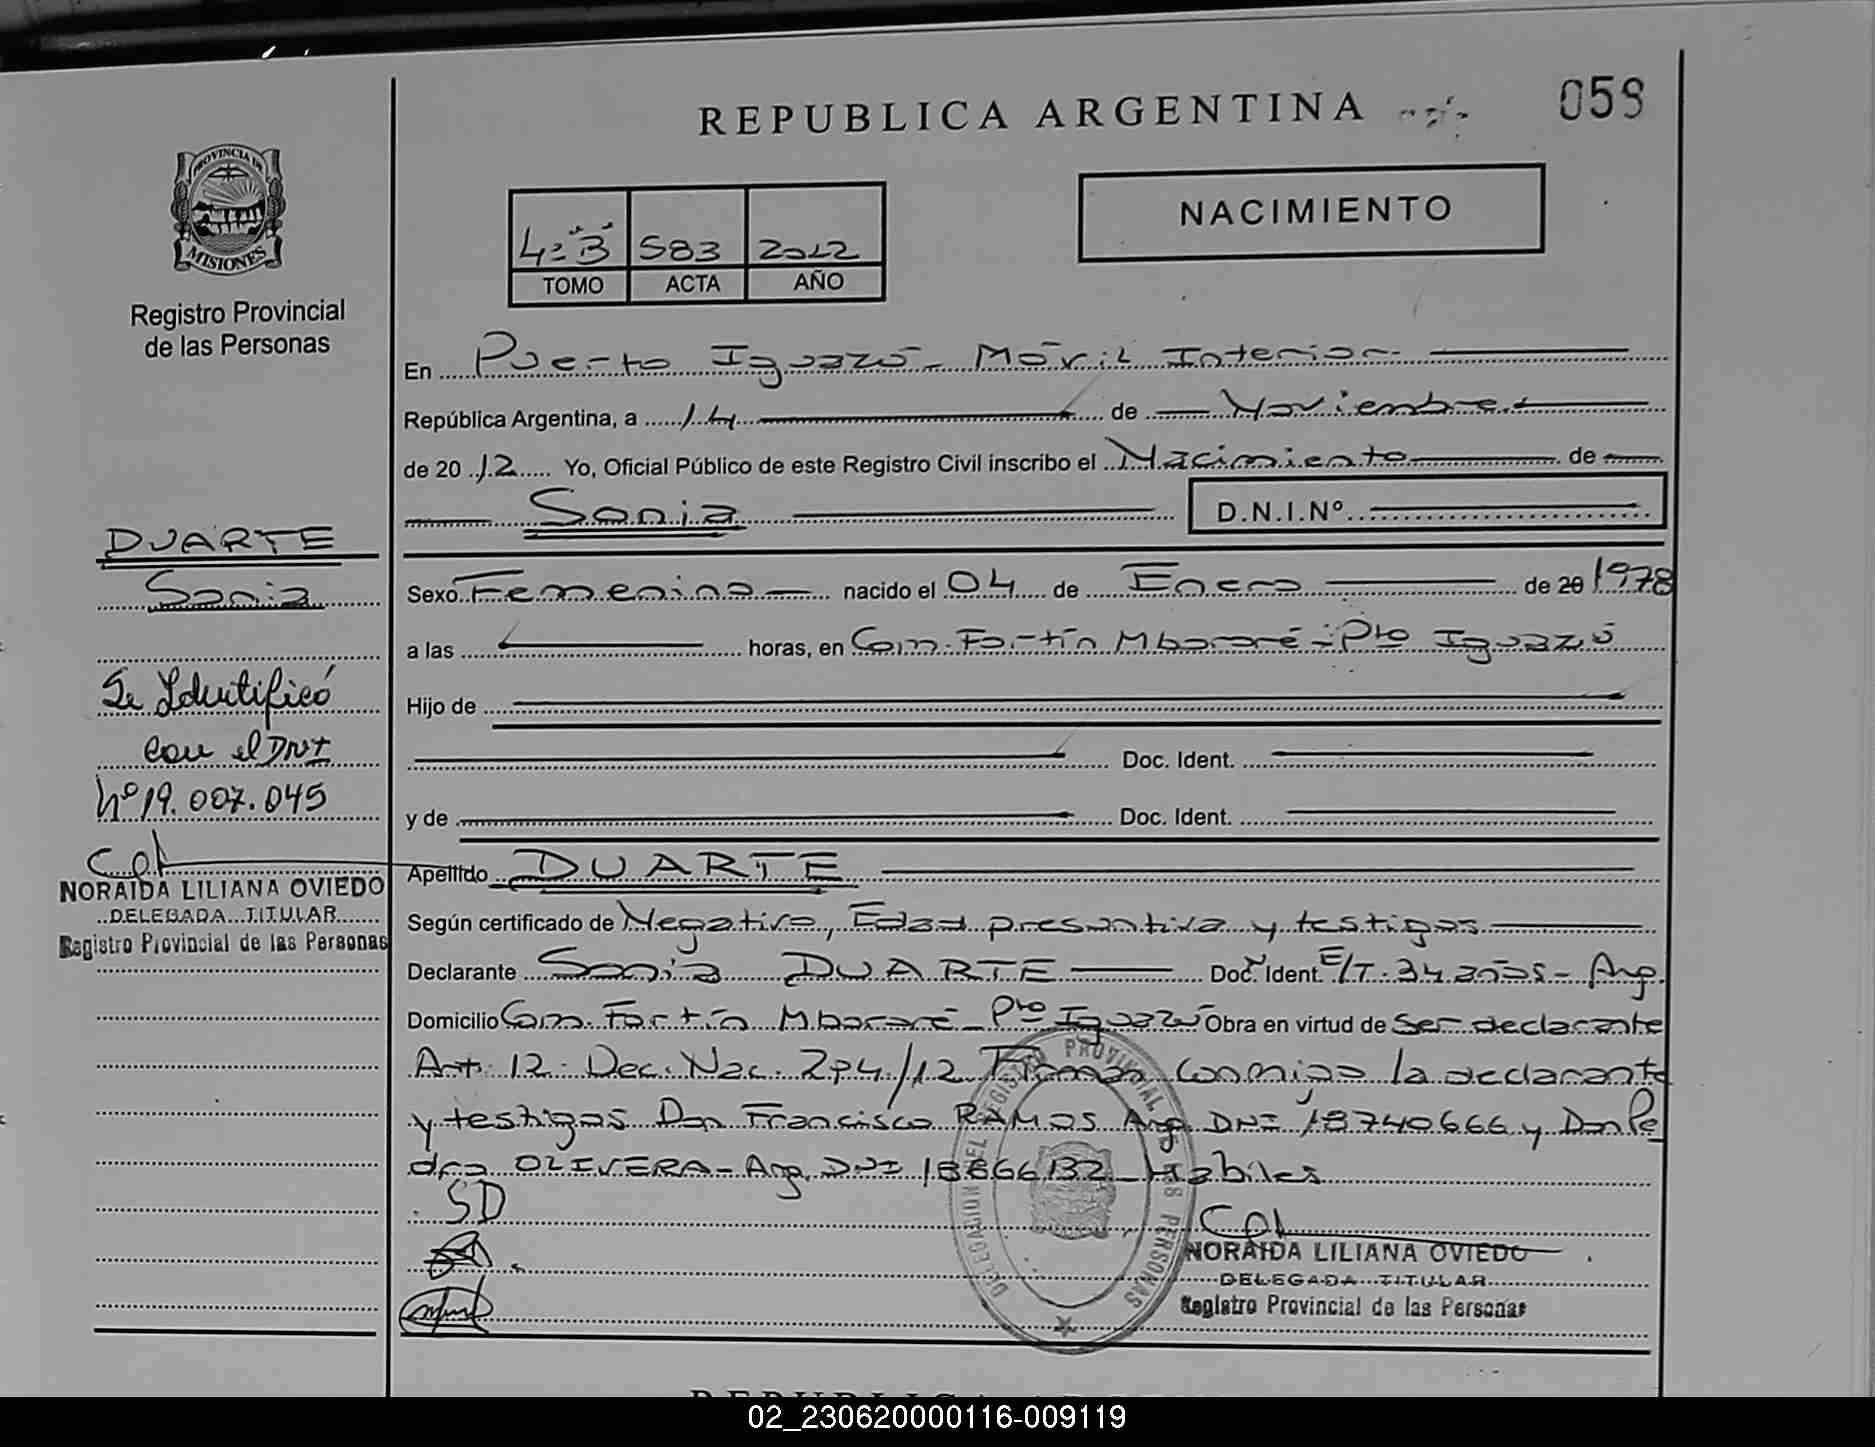 REPUBLICA ARGENTINA
059
PROVINCIA DE
MISIONES
Registro Provincial
de las Personas
NACIMIENTO
4º "B" 583 2012
TOMO ACTA AÑO
En Puerto Iguazú - Móvil Interior
República Argentina, a 14 de Noviembre
de 2012 Yo, Oficial Público de este Registro Civil inscribo el Nacimiento de
Sonia D.N.I.Nº
DUARTE
Sonia
Se Identificó
con el DNI
Nº 19.007.045
NORAIDA LILIANA OVIEDO
DELEGADA TITULAR
Registro Provincial de las Personas
Sexo Femenino nacido el 04 de Enero de 20 1978
a las horas, en Com. Fortín Mbororé - Pto Iguazú
Hijo de
Doc. Ident.
y de Doc. Ident.
Apellido DUARTE
Según certificado de Negativo, Edad presuntiva y testigos
Declarante Sonia DUARTE Doc. Ident. E/T. 34 años - Arg.
Domicilio Com. Fortín Mbororé - Pto Iguazú Obra en virtud de ser declarante
Art. 12 Dec. Nac. 294/12 Firman conmigo la declarante
y testigos Don Francisco RAMOS Arg DNI 18740666 y Don Pe
dro OLIVERA - Arg. DNI 18866132 - Hábiles
SD
DELEGACION DEL REGISTRO PROVINCIAL DE LAS PERSONAS
NORAIDA LILIANA OVIEDO
DELEGADA TITULAR
Registro Provincial de las Personas
02_230620000116-009119